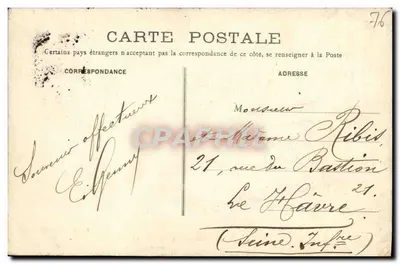 76
CARTE POSTALE
Certains pays étrangers n'acceptant pas la correspondance de ce côté, se renseigner à la Poste
CORRESPONDANCE
ADRESSE
Souvenir affectueux
Monsieur
et Madame Ribis,
21, rue du Bastion
21.
Le Hâvre
(Seine-Infre)
CPARAMA